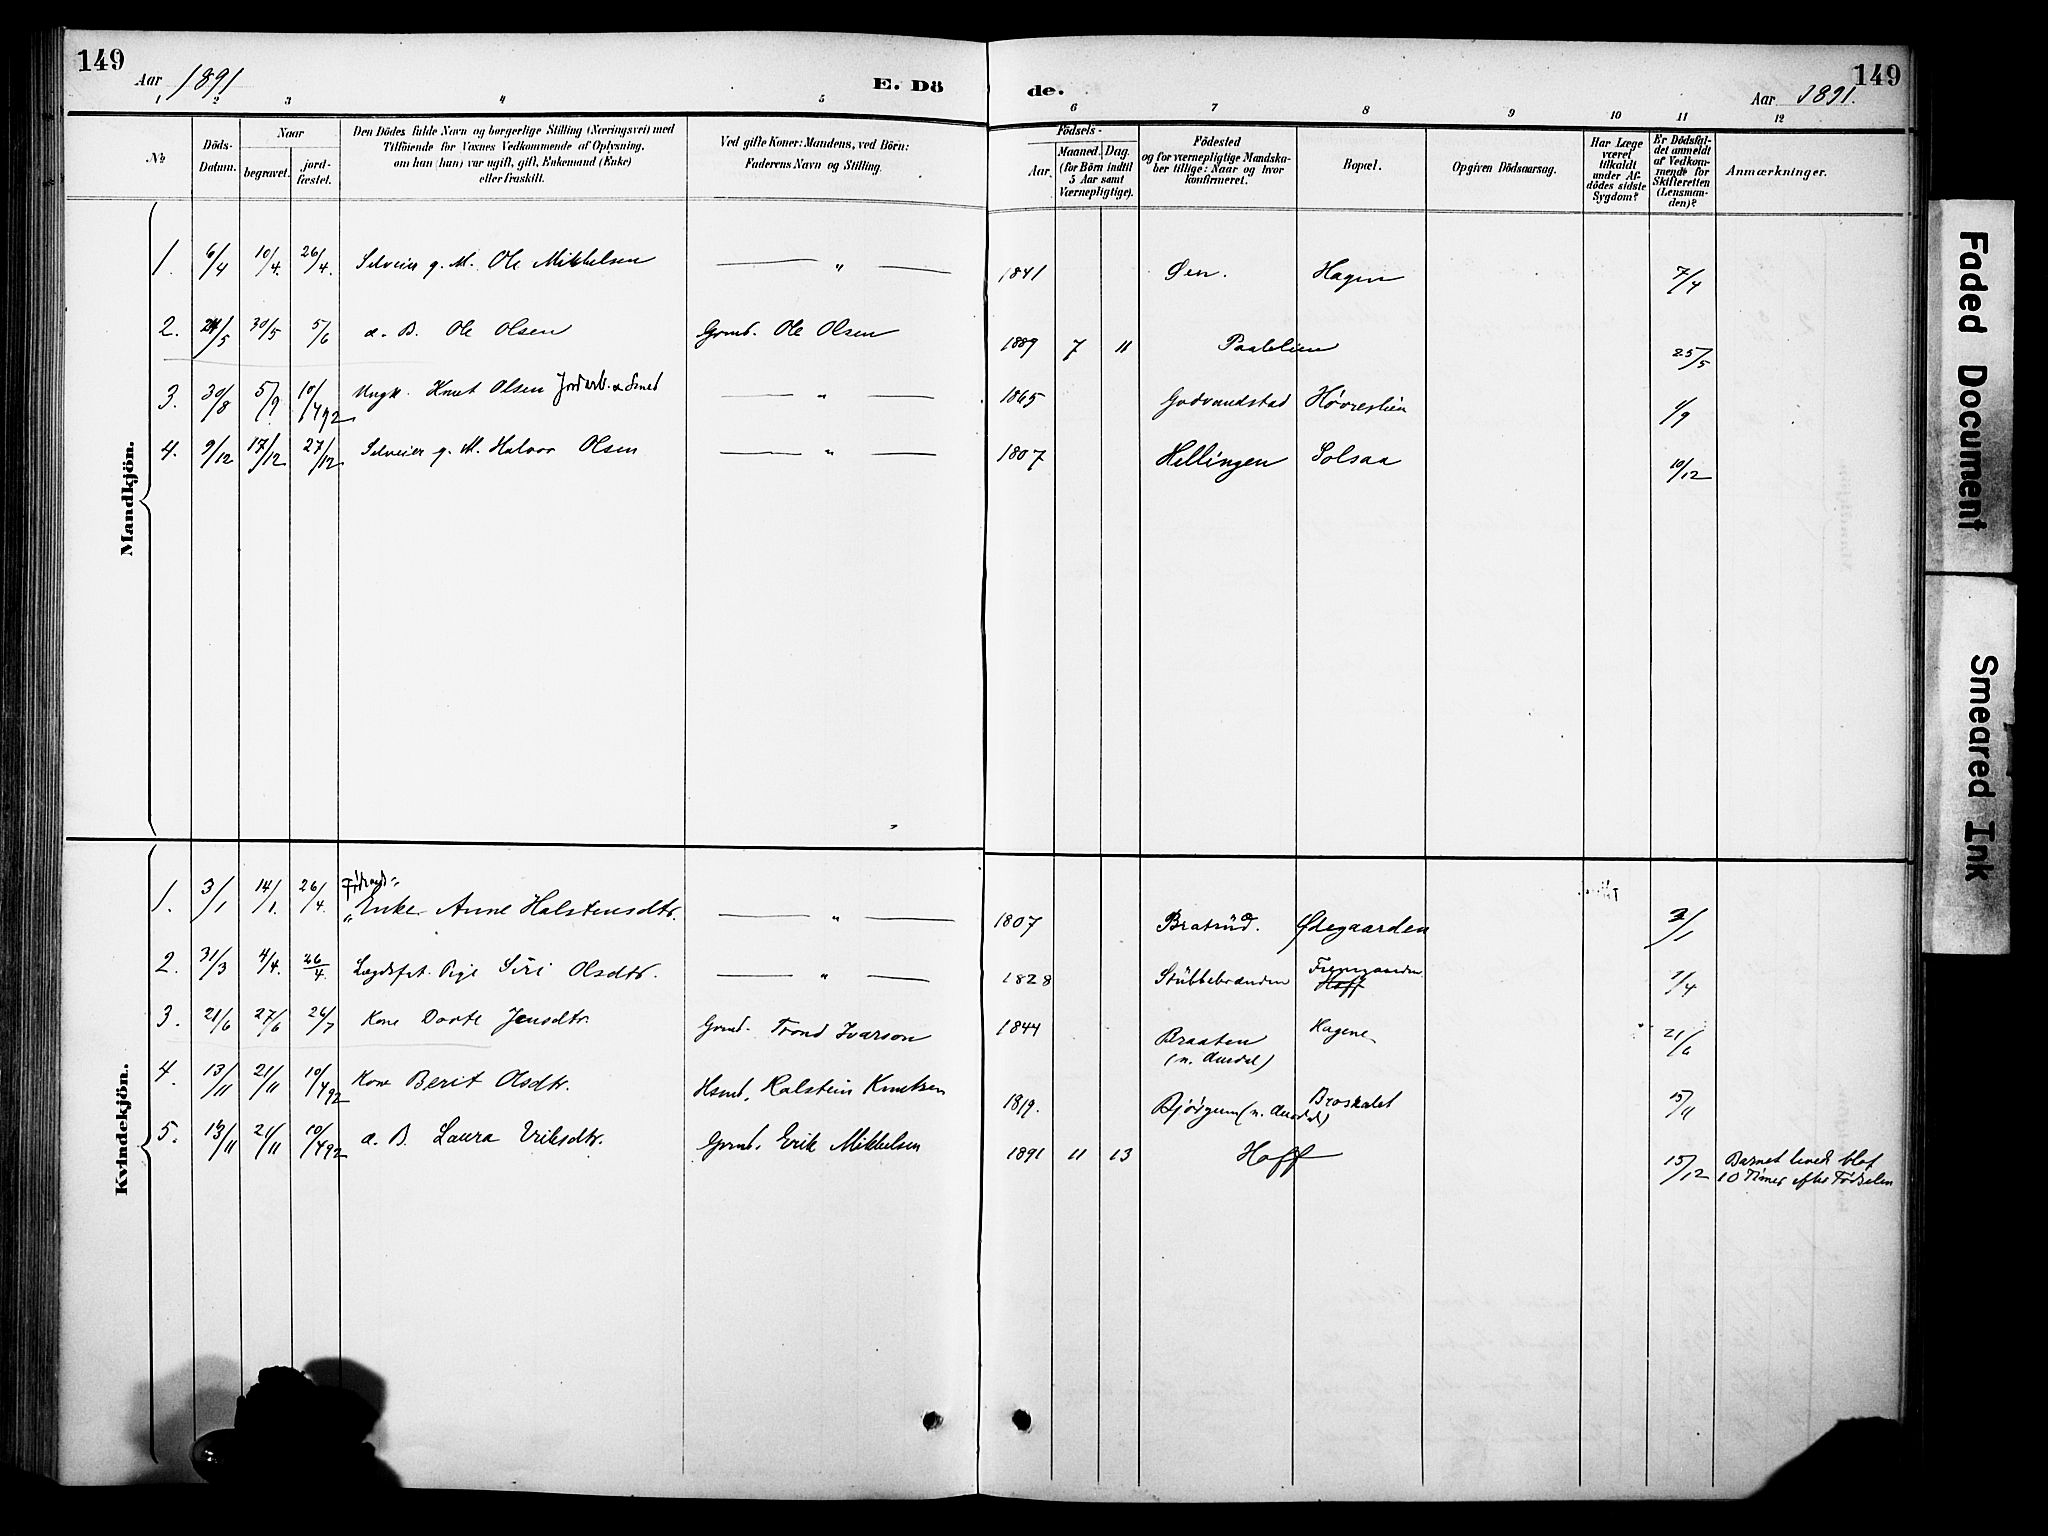 149
Aar 1891
E. Dö
de.
Aar 1891.
149
1 2 3 4 5 6 7 8 9 10 11 12
No
Döds-
Datum.
Naar
begravet.
jord-
fæstet.
Den Dödes fulde Navn og borgerlige Stilling (Næringsvei) med
Tilföiende for Voxnes Vedkommende af Oplysning,
om han (hun) var ugift, gift, Enkemand (Enke)
eller fraskilt.
Ved gifte Koner: Mandens, ved Börn:
Faderens Navn og Stilling.
Födsels-
Aar.
Maaned. Dag.
(for Börn indtil
5 Aar samt
Værnepligtige).
Födested
og for værnepligtige Mandska-
ber tillige: Naar og hvor
konfirmeret.
Bopæl.
Opgiven Dödsaarsag.
Har Læge
været
tilkaldt
under Af-
dödes sidste
Sygdom?
Er Dödsfal-
det anmeldt
af Vedkom-
mende for
Skifteretten
(Lensman-
den)?
Anmærkninger.
Mandkjön.
1. 6/4 10/4. 26/4. Selveier g. M. Ole Mikkelsen — " — 1841 Øen. Hagen 7/4
2. 24/5 30/5 5/6 a. B. Ole Olsen Grmd. Ole Olsen 1889 7 11 Paalelien 25/5
3. 30/8 5/9. 10/4 92 Ungk. Knut Olsen Jordarb. & Smed — " — 1865 Godvandstad Høvreslien 1/9
4. 9/12 17/12 27/12 Selveier g. M. Halvor Olsen — " — 1807 Hellingen Solsaa 10/12
Kvindekjön.
1. 3/1 14/1. 26/4. Føderaads-
" Enke Anne Halstensdtr. — " — 1807 Bratrud. Ødegaarden 3/1
2. 31/3 4/4. 26/4 Lægdsfat. Pige Siri Olsdtr. — " — 1828 Stubbebraaden Hoff 1/4
3. 21/6 27/6 26/7 Kone Dorte Jensdtr. Grmd. Trond Ivarson 1844 Braaten Hagene 21/6
(n. Aurdal)
4. 13/11 21/11 10/4 92 Kone Berit Olsdtr. Hsmd. Halstein Knutsen 1819. Bjørgum (n. Aurdal) Broskalet 15/11
5. 13/11 21/11 10/4 92 a. B. Laura Eriksdtr. Grmd. Erik Mikkelsen 1891 11 13 Hoff 15/12 Barnet levede blot
10 Timer efter Fødselen
Faded Document
Smeared Ink